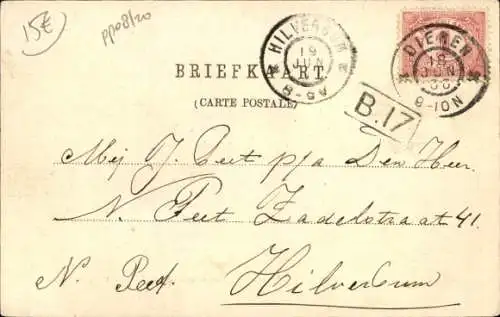 15€
pp08/20
HILVERSUM
19
JUN
8-9A
DIEMEN
18
JUN
8-10N
BRIEFKAART
(CARTE POSTALE)
B.17
Mej J. Peet p/a Den Heer
N. Peet Zadelstraat 41.
N. Peet Hilversum